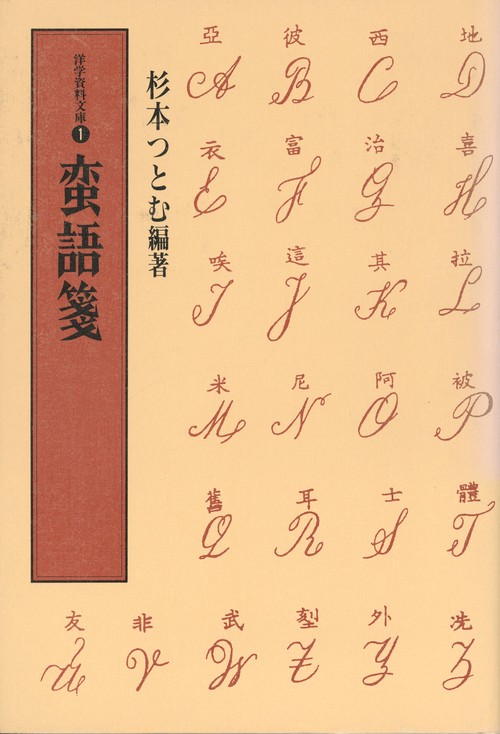 洋学資料文庫❶
蛮語箋
杉本つとむ編著
亞 彼 西 地
A B C D
衣 富 治 喜
E F G H
唉 這 其 拉
I J K L
米 尼 阿 被
M N O P
舊 耳 士 體
Q R S T
友 非 武 外 冼
U V W Z